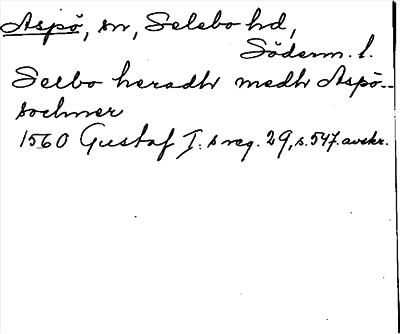 Aspö, sn, Selebo hd,
Söderm. l.
Selbo heradh medh Aspö-
sochner
1560 Gustaf I:s reg. 29, s. 547. avskr.